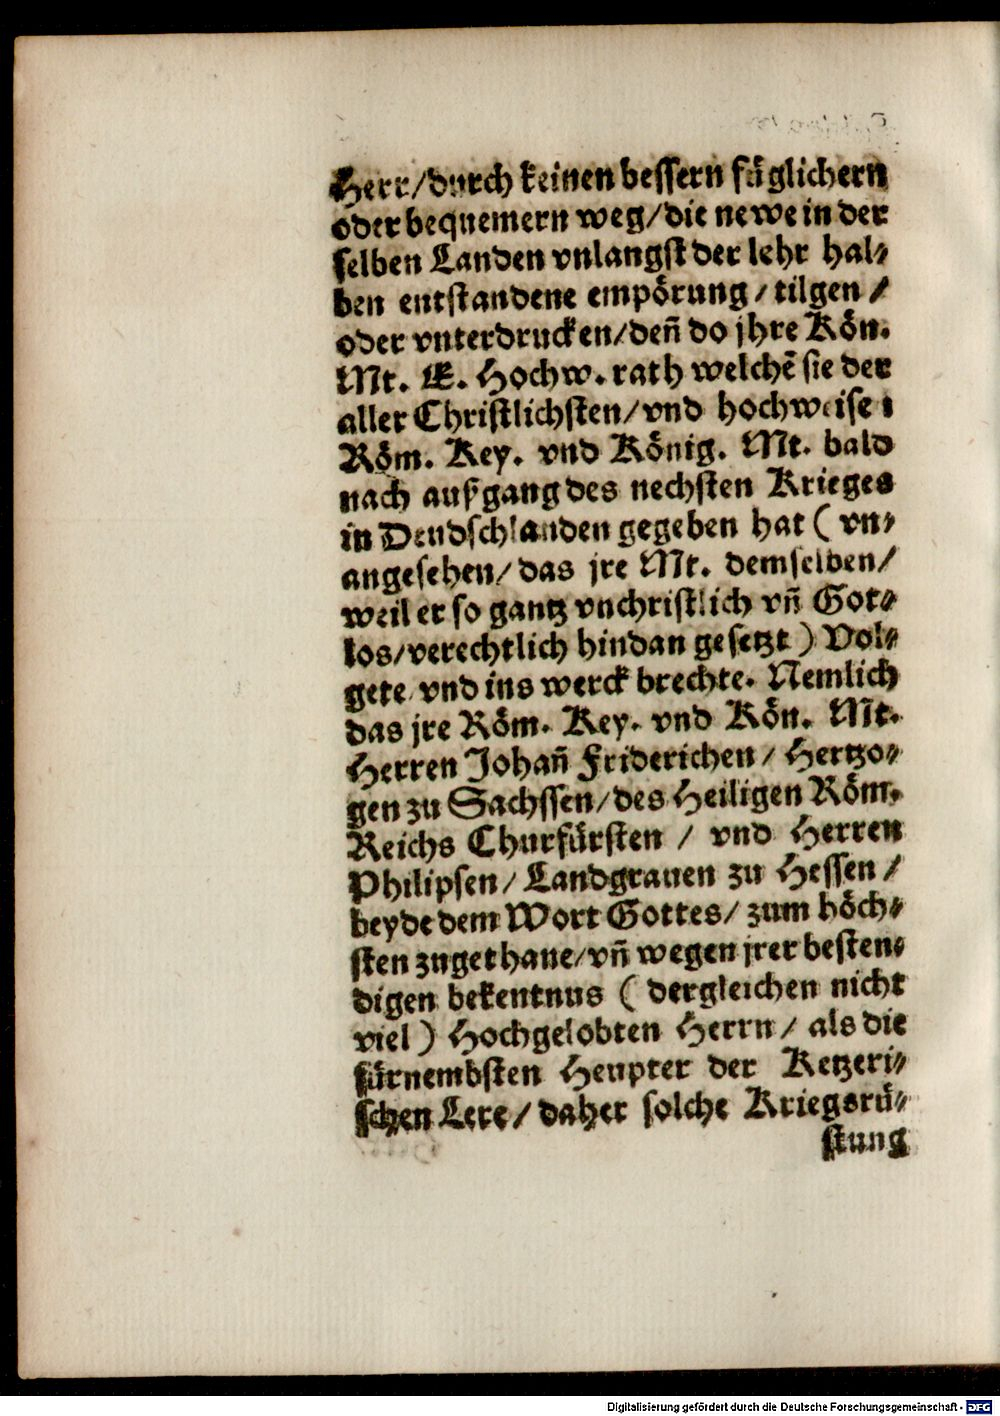 Herr/durch keinen bessern füglichern
oder bequemern weg/die newe in der
selben Landen vnlangst der lehr hal⸗
ben entstandene empörung/tilgen/
oder vnterdrucken/deñ do jhre Kön.
Mt. E. Hochw. rath welchẽ sie der
aller Christlichsten/vnd hochweisen
Röm. Key. vnd König. Mt. bald
nach außgang des nechsten Krieges
in Deudschlanden gegeben hat (vn⸗
angesehen/das jre Mt. demselben/
weil er so gantz vnchristlich vñ Got⸗
los/verechtlich hindan gesetzt) Vol⸗
gete vnd ins werck brechte. Nemlich
das jre Röm. Key. vnd Kön. Mt.
Herren Johañ Friderichen/Hertzo⸗
gen zu Sachssen/des Heiligen Röm.
Reichs Churfürsten/vnd Herren
Philipsen/Landgrauen zu Hessen/
beyde dem Wort Gottes/zum höch⸗
sten zugethane/vñ wegen jrer besten⸗
digen bekentnus (dergleichen nicht
viel) Hochgelobten Herrn/als die
fürnembsten Heupter der Ketzeri⸗
schen Lere/daher solche Kriegsrü⸗
stung
Digitalisierung gefördert durch die Deutsche Forschungsgemeinschaft - DFG